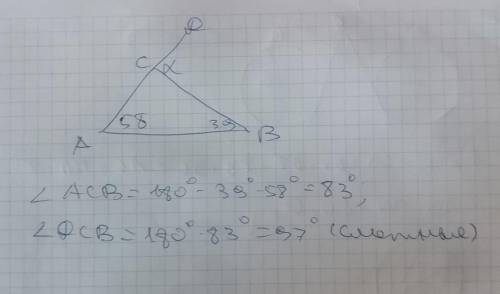 D
C α
58 39
A B
∠ ACB = 180° - 39° - 58° = 83°;
∠ DCB = 180° - 83° = 97° (смежные)